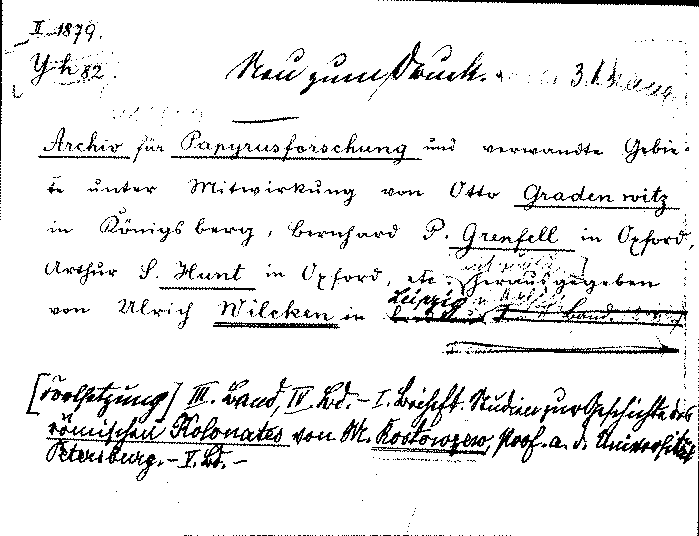 II 1879.
Yh 82.
Neu zum Druck.
Archiv für Papyrusforschung und verwandte Gebie-
te unter Mitwirkung von Otto Gradenwitz
in Königsberg, Bernhard P. Grenfell in Oxford,
Arthur S. Hunt in Oxford, etc. herausgegeben
von Ulrich Wilcken in Leipzig
[Fortsetzung] III. Band, IV. Bd. - I. Beiheft. Studien zur Geschichte des
römischen Kolonates von M. Rostowzew, Prof. a. d. Universität
Petersburg. - V. Bd. -